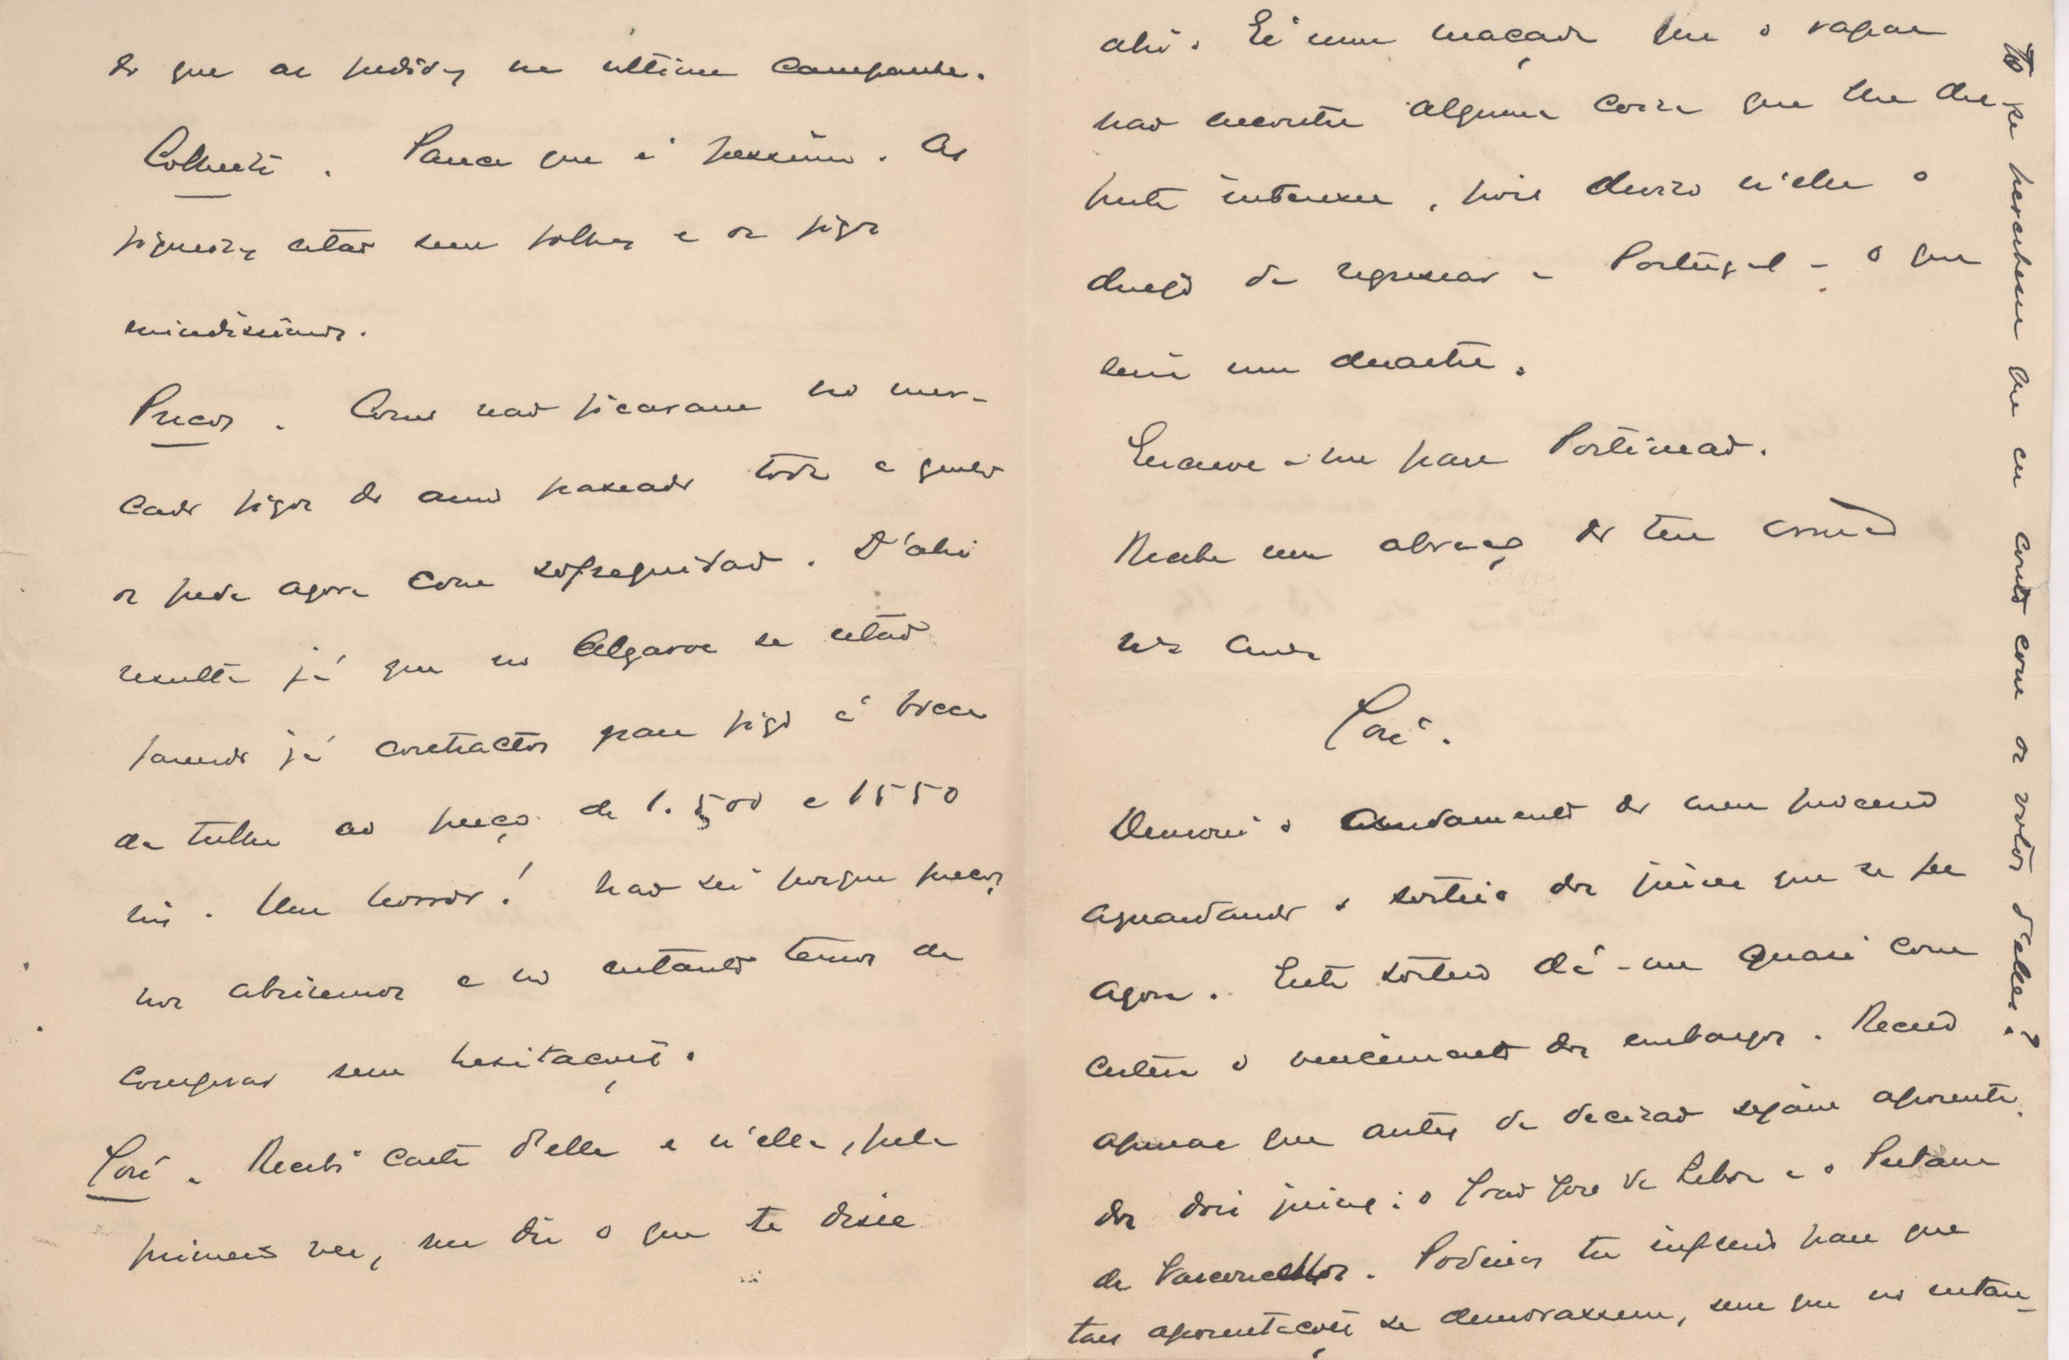 do que os pedidos na ultima campanha.
Colheita. Parece que é pessima. As
figueiras estão sem folhas e os figos
mindissimos.
Preços. Como não ficaram no mer-
cado figos do anno passado toda a gente
os pede agora com sofreguidão. D'ahi
resulta já que no Algarve se estão
fazendo já contractos para figo á bocca
da tulha ao preço de 1.500 e 1550
reis. Um horror! Não sei porque preços
nos abriremos e no entanto temos de
comprar sem hesitações.
José. Recebi carta d'elle e n'ella, pela
primeira vez, me diz o que te disse
ahi. É uma maçada que o rapaz
não encontre alguma coisa que lhe des-
perte interesse, pois deviso n'elle o
desejo de regressar a Portugal - o que
seria um desastre.
Escreve-me para Portimão.
Recebe um abraço do teu irmão
José.
Demorei o andamento do meu processo
aguardando o sorteio dos juizes que se fez
agora. Este sorteio dá-me quasi como
certeza o vencimento dos embargos. Receio
apenas que antes da decisão sejam aposenta-
dos dois juizes: o João José da Silva e o Pestana
de Vasconcellos. Poderias tu influir para que
tais aposentações se demorassem, sem que no entan-
to se percebesse que eu conto com os votos d'elles?